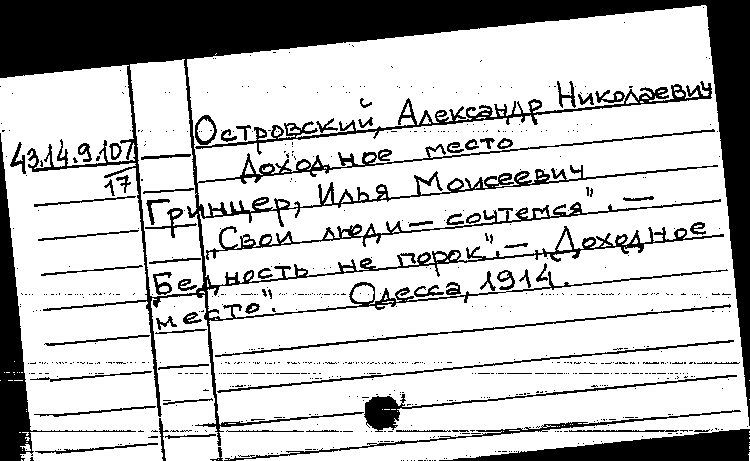 Островский, Александр Николаевич
43.14.9.107
17
Доходное место
Гринцер, Илья Моисеевич
„Свои люди — сочтемся". —
„Бедность не порок". — „Доходное
место". Одесса, 1914.